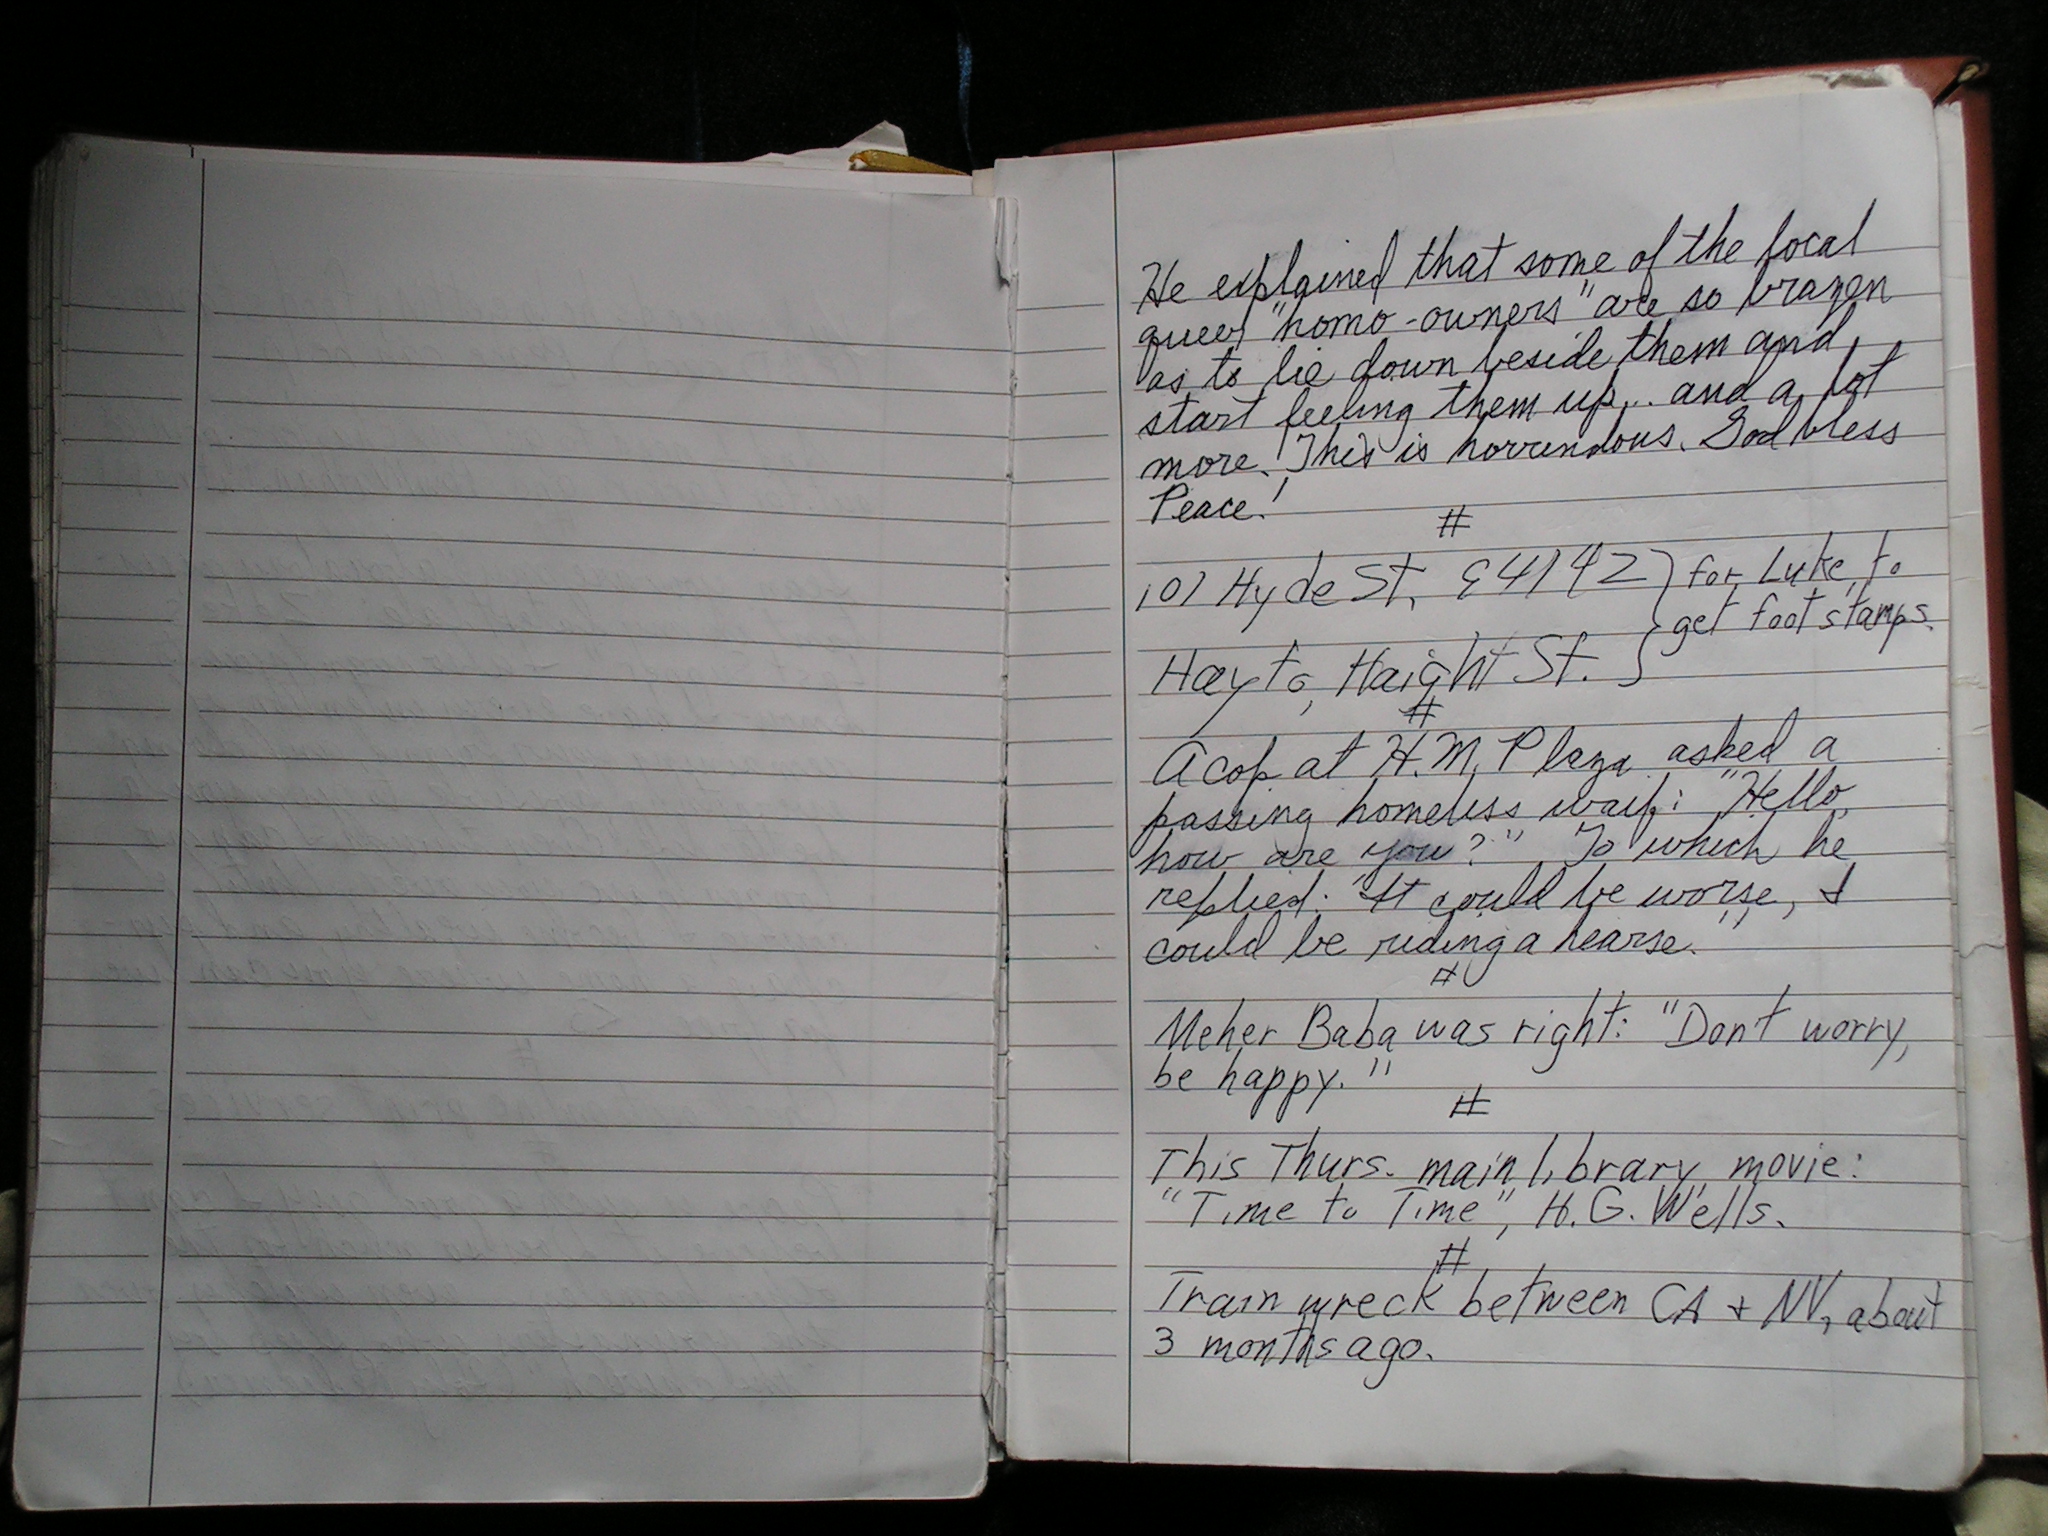 He explained that some of the local
queer "homo-owners" are so brazen
as to lie down beside them and
start feeling them up... and a lot
more. This is horrendous. God bless
Peace!
#
101 Hyde St, 94142 } for Luke to
get foot stamps.
Hayto, Haight St. }
#
A cop at H.M. Plaza asked a
passing homeless waif: "Hello,
how are you?" To which he
replied: "It could be worse, I
could be riding a hearse."
#
Meher Baba was right: "Don't worry,
be happy."
#
This Thurs. main library movie:
"Time to Time", H.G. Wells.
#
Train wreck between CA & NV, about
3 months ago.